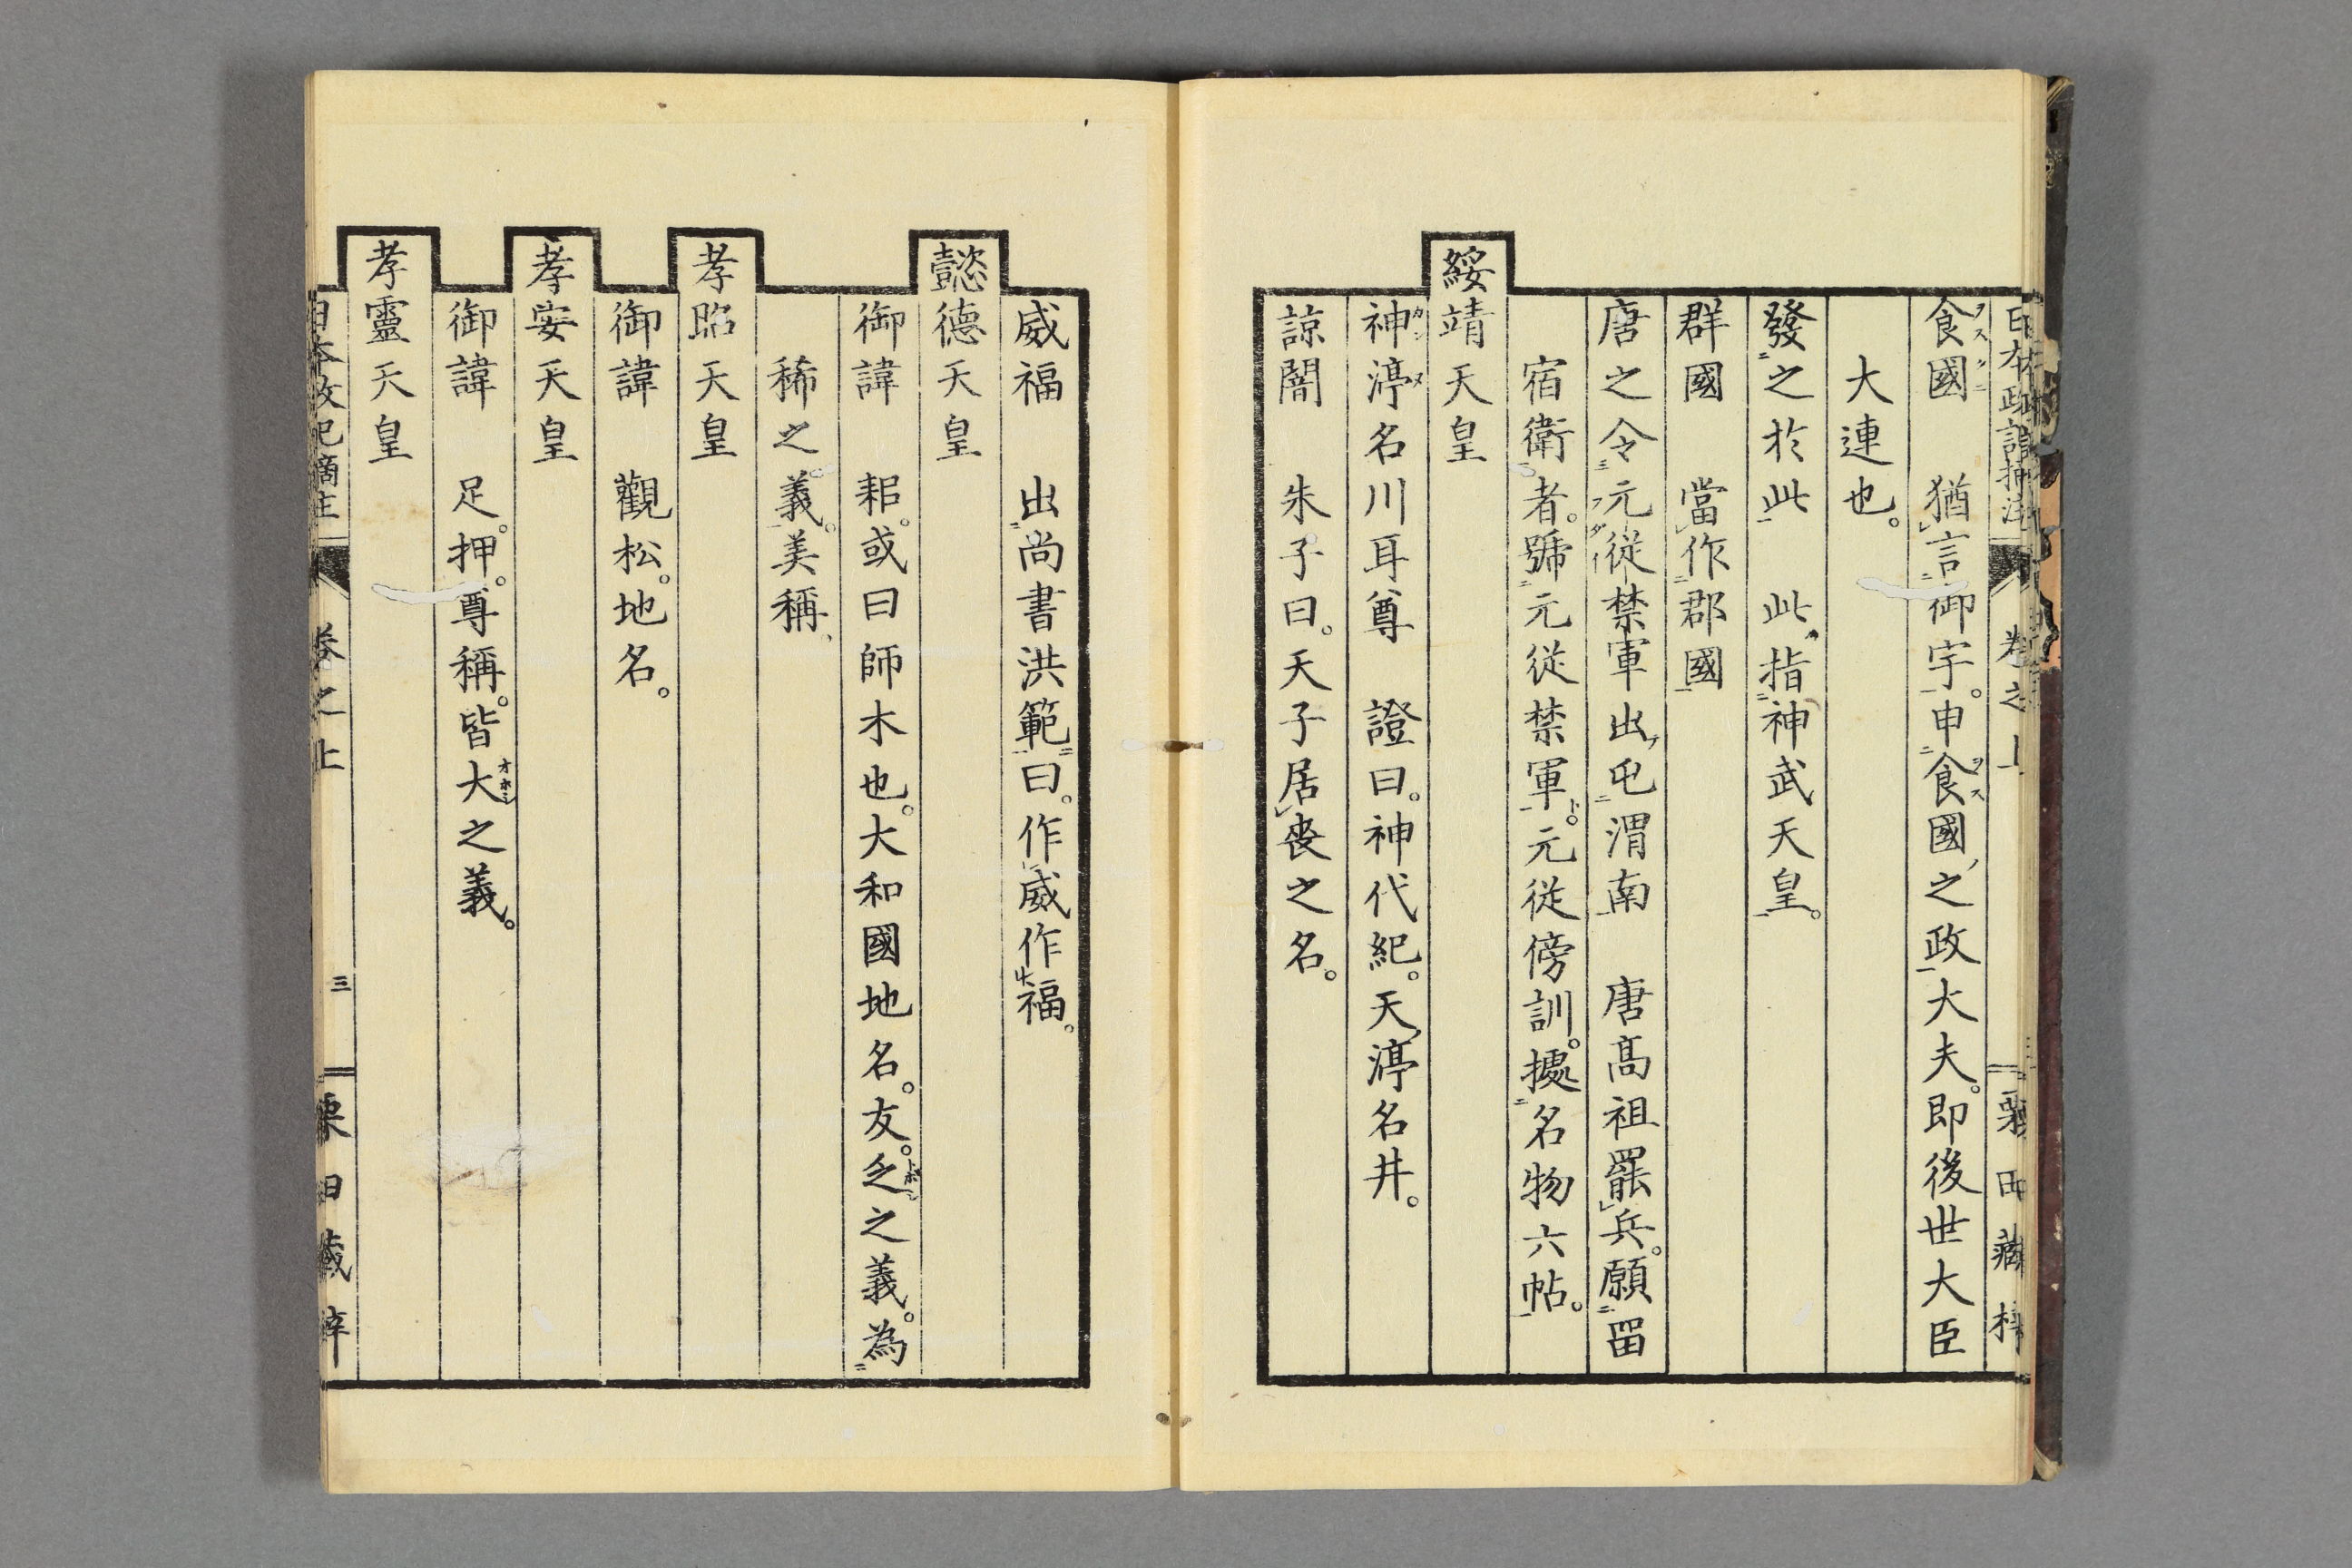 食國　猶言御宇。申食國之政大夫。即後世大臣
大連也。
發之於此　此指神武天皇。
群國　當作郡國
唐之令元從禁軍出屯渭南　唐高祖罷兵。願留
宿衛者。號元從禁軍。元從傍訓。據名物六帖。
綏靖天皇
神渟名川耳尊　證曰。神代紀。天渟名井。
諒闇　朱子曰。天子居喪之名。
威福　出尚書洪範曰。作威作福。
懿德天皇
御諱　耜。或曰師木也。大和國地名。友。乏之義。為
稀之義。美稱
孝昭天皇
御諱　觀松。地名。
孝安天皇
御諱　足。押。尊稱。皆大之義。
孝靈天皇
卷之上
三